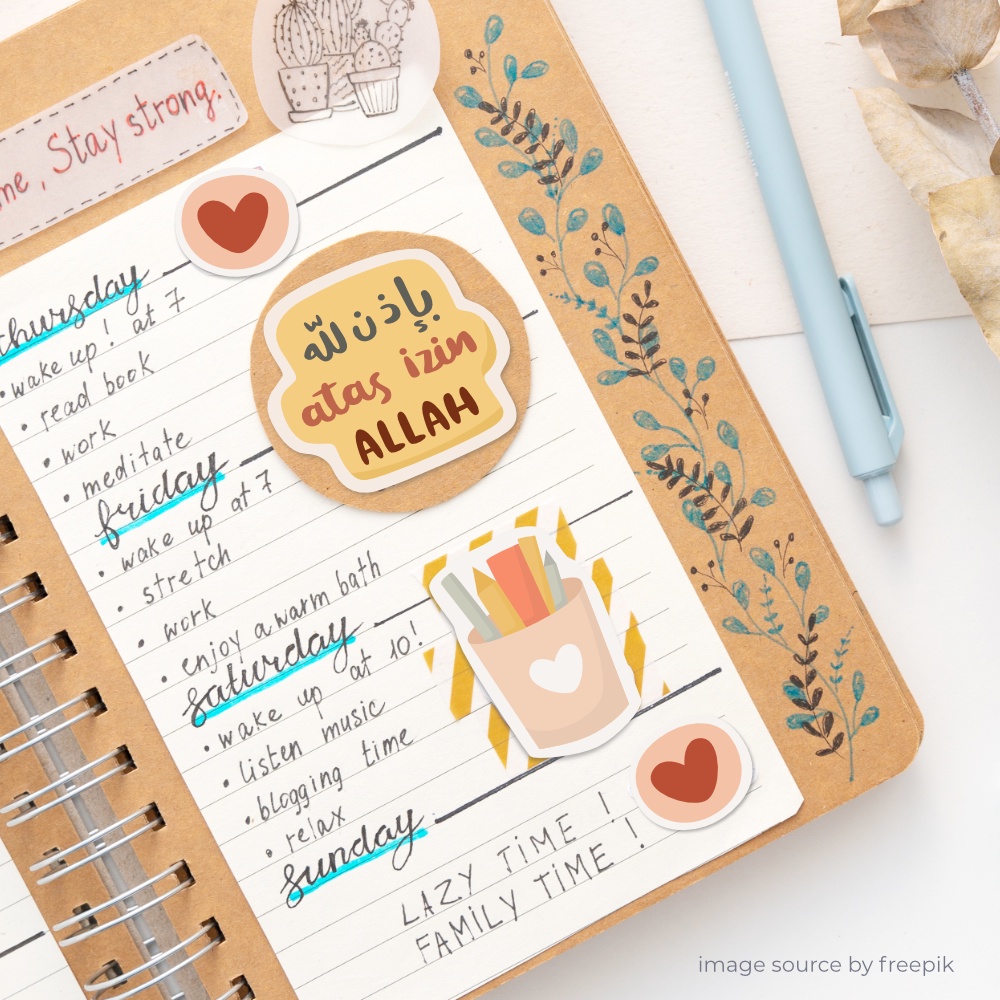 me, Stay strong.
thursday
• wake up! at 7
• read book
• work
• meditate
بإذن لله
atas izin
ALLAH
friday
• wake up at 7
• stretch
• work
enjoy a warm bath
saturday
• wake up at 10!
• listen music
• blogging time
• relax
sunday
LAZY TIME !
FAMILY TIME !
image source by freepik